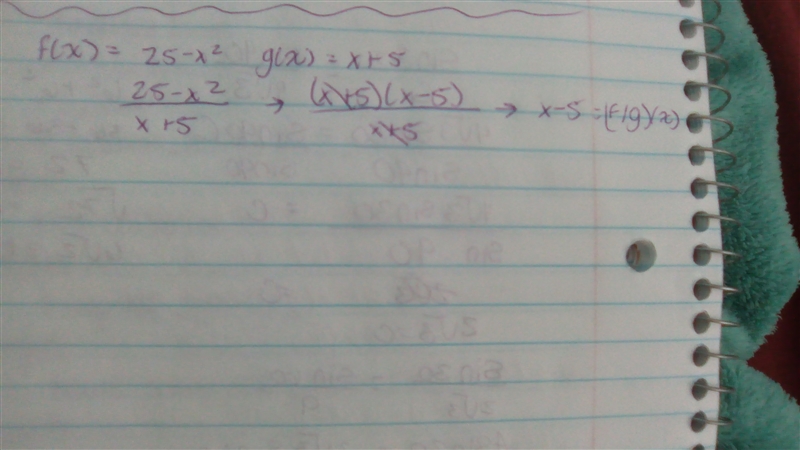 f(x) = 25-x² g(x) = x+5
25-x² / x+5 → (x+5)(x-5) / x+5 → x-5 = (f/g)(x)